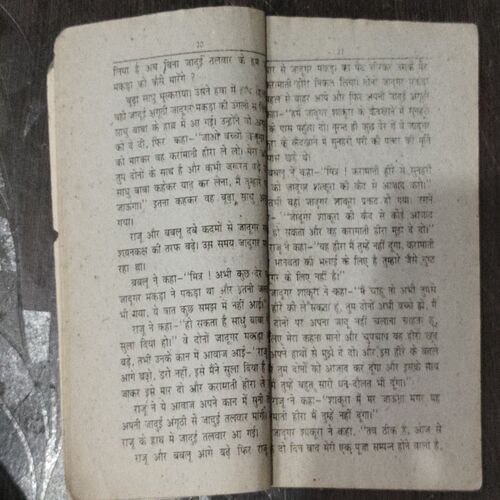 20
लिया है अब बिना जादुई तलवार के हम
मकड़ा को कैसे मारेंगे ?
बूढ़ा साधु मुस्कराया। उसने हवा में हाथ
वही जादुई अंगूठी जादूगर मकड़ा की उंगली में
साधु बाबा के हाथ में आ गई। उन्होंने वो अंगूठी
को दे दी, फिर कहा-"जाओ बच्चों
को मारकर वह करामाती हीरा ले लो। मेरा
तुम दोनों के साथ है और कभी जरूरत पड़े
साधु बाबा कहकर याद कर लेना, मैं तुम्हारे
जाऊंगा।" इतना कहकर वह बूढ़ा साधु
गया।
राजू और बबलू दबे कदमों से जादूगर
शयनकक्ष की तरफ बढ़े। उस समय जादूगर
रहा था।
बबलू ने कहा-"मित्र ! अभी कुछ देर
जादूगर मकड़ा ने पकड़ा था और इतनी
भी गया, ये बात कुछ समझ में नहीं आई।"
राजू ने कहा-"हो सकता है साधु बाबा
सुला दिया हो।" वे दोनों जादूगर मकड़ा
बढ़े, तभी उनके कान में आवाज आई-"राजू
आगे बढ़ो, डरो नहीं, इसे मैंने सुला दिया है
जाकर इसे मार दो और करामाती हीरा ले
राजू ने ये आवाज अपने कान में सुनी
अपनी जादुई अंगूठी से जादुई तलवार मांगी।
राजू के हाथ में जादुई तलवार आ गई।
राजू और बबलू आगे बढ़े फिर राजू
21
से जादूगर मकड़ा का पेट चीरकर उसके पेट
करामाती हीरा निकल लिया। दोनों जादूगर मकड़ा
महल से बाहर आये और फिर अपनी जादुई अंगूठी
कहा-"हमें जादूगर शाकूरा के कैदखाने में सुनहरी
के पास पहुंचा दो। तुरन्त ही कुछ देर में वे जादूगर
के कैदखाने में सुनहरी परी की पत्थर की मूर्ति
पास खड़े थे।
बबलू ने कहा-"मित्र ! करामाती हीरे से सुनहरी
को जादूगर शाकूरा की कैद से आजाद करो।"
तभी वहां जादूगर शाकूरा प्रकट हो गया। उसने
"जादूगर शाकूरा की कैद से कोई आजाद
हो सकता और वह करामाती हीरा मुझे दे दो।"
राजू ने कहा-"यह हीरा मैं तुम्हें नहीं दूंगा, करामाती
मानवता की भलाई के लिए है तुम्हारे जैसे दुष्ट
के लिए नहीं है।"
जादूगर शाकूरा ने कहा-"मैं चाहूं तो अभी तुमसे
हीरे को ले सकता हूं, तुम दोनों अभी बच्चे हो, मैं
दोनों पर अपना जादू नहीं चलाना चाहता हूं,
लिए मेरा कहना मानो और चुपचाप वह हीरा खुद
अपने हाथों से मुझे दे दो। और इस हीरे के बदले
तुम दोनों को आजाद कर दूंगा और इसके साथ
मैं तुम्हें बहुत सारी धन-दौलत भी दूंगा।"
राजू ने कहा-"शाकूरा मैं मर जाऊंगा मगर यह
करामाती हीरा मैं तुम्हें नहीं दूंगा।"
जादूगर शाकूरा ने कहा, "तब ठीक है, आज से
दो दिन बाद मेरी एक पूजा सम्पन्न होने वाली है,